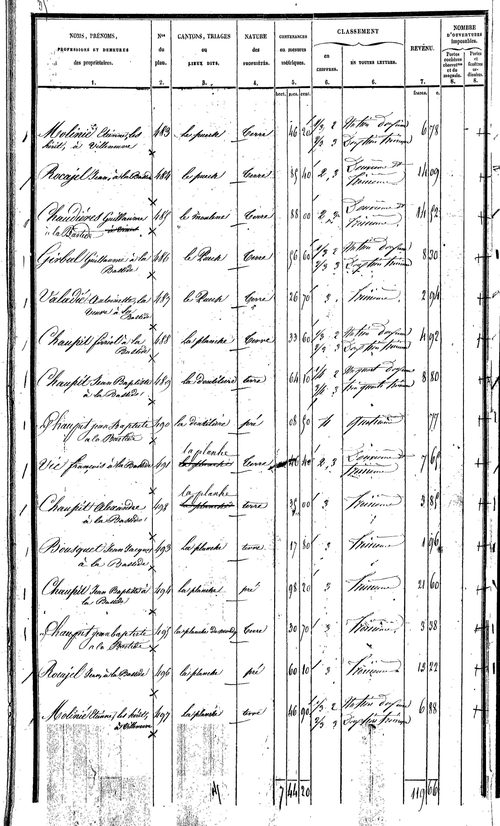 NOMS, PRÉNOMS, PROFESSIONS ET DEMEURES des propriétaires.
Nos du plan.
CANTONS, TRIAGES OU LIEUX DITS.
NATURE des PROPRIÉTÉS.
CONTENANCES EN MESURES MÉTRIQUES
CLASSEMENT
en CHIFFRES.
EN TOUTES LETTRES.
REVENU.
NOMBRE D'OUVERTURES imposables.
1. 2. 3. 4. 5. 6. 6. 7. 8. 8.
hect. ares. cent. francs. c.
Molinié Etienne, les hérit. à Villeneuve 483 le puech Terre 46 20 1/3 2 2/3 3 6 78
Rocajel Jean, à la Bastide 484 le puech Terre 85 40 2, 3 Deuxième et troisième 14 09
Chaudières Guillaume à la Bastide 485 le moulene Terre 88 00 2, 3 Deuxième et troisième 14 52
Girbel Guillaume à la Bastide 486 le Puech Terre 56 60 1/3 2 2/3 3 8 30
Valadié Antoinette, la veuve à la Bastide 487 le Puech Terre 26 70 3 Troisième 2 94
Chaupit à la Bastide 488 la planche Terre 33 60 1/3 2 2/3 3 4 92
Chaupit Jean Baptiste à la Bastide 489 la dentilaire terre 64 10 8 80
Chaupit jean baptiste à la Bastide 490 la dentilaire pré 08 50 4 quatrième 77
Vié françois à la Bastide 491 la planche Terre 40 2, 3 Deuxième et troisième 7 65
Chaupit Alexandre à la Bastide 492 la planche terre 35 00 3 Troisième 3 85
Bousquet Jean Jacques à la Bastide 493 la planche terre 17 80 3 Troisième 1 96
Chaupit Jean Baptiste à la Bastide 494 la planche pré 98 20 3 Troisième 21 60
Chaupit jean baptiste à la Bastide 495 la planche Terre 30 70 3 Troisième 3 38
Rocajel Jean, à la Bastide 496 la planche pré 60 10 3 Troisième 13 22
Molinié Etienne, les hérit. à Villeneuve 497 la planche terre 46 90 1/3 2 2/3 3 6 88
7 44 20 119 66